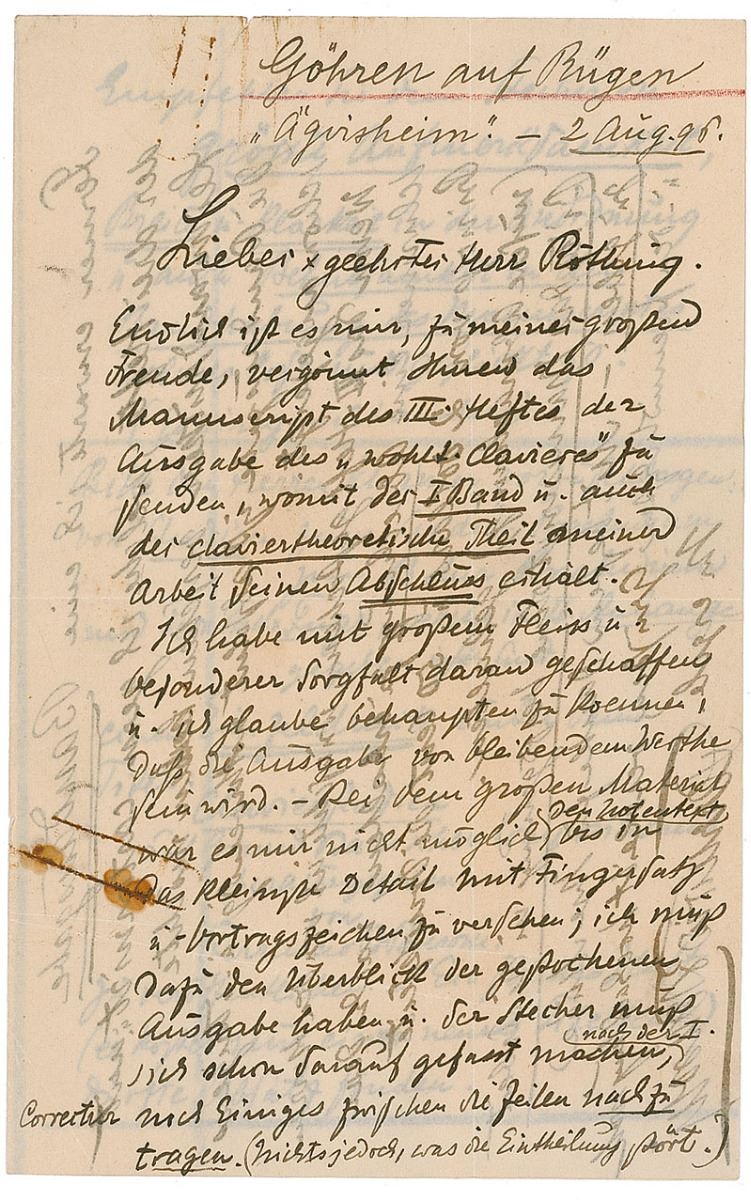 Göhren auf Rügen
„Ägirsheim“. – 2 Aug. 96.
Lieber & geehrter Herr Röthing.
Endlich ist es mir, zu meiner großen
Freude, vergönnt Ihnen das
Manuscript des III. Heftes der
Ausgabe des „wohlt. Clavieres“ zu
senden, womit der I Band u. auch
der claviertheoretische Theil meiner
Arbeit seinen Abschluss erhält.
Ich habe mit großem Fleiss u.
besonderer Sorgfalt daran geschaffen
u. ich glaube behaupten zu koennen,
daß die Ausgabe von bleibendem Werthe
sein wird. – Bei dem großen Material
war es mir nicht möglich (den Notentext) bis in
das kleinste Detail mit Fingersatz
u. Vortragszeichen zu versehen; ich muß
dazu den Überblick der gestochenen
Ausgabe haben u. der Stecher muß
sich schon darauf gefasst machen, (nach der I.
Correctur noch Einiges zwischen die Zeilen nachzu
tragen. (Nichts jedoch, was die Eintheilung stört.)